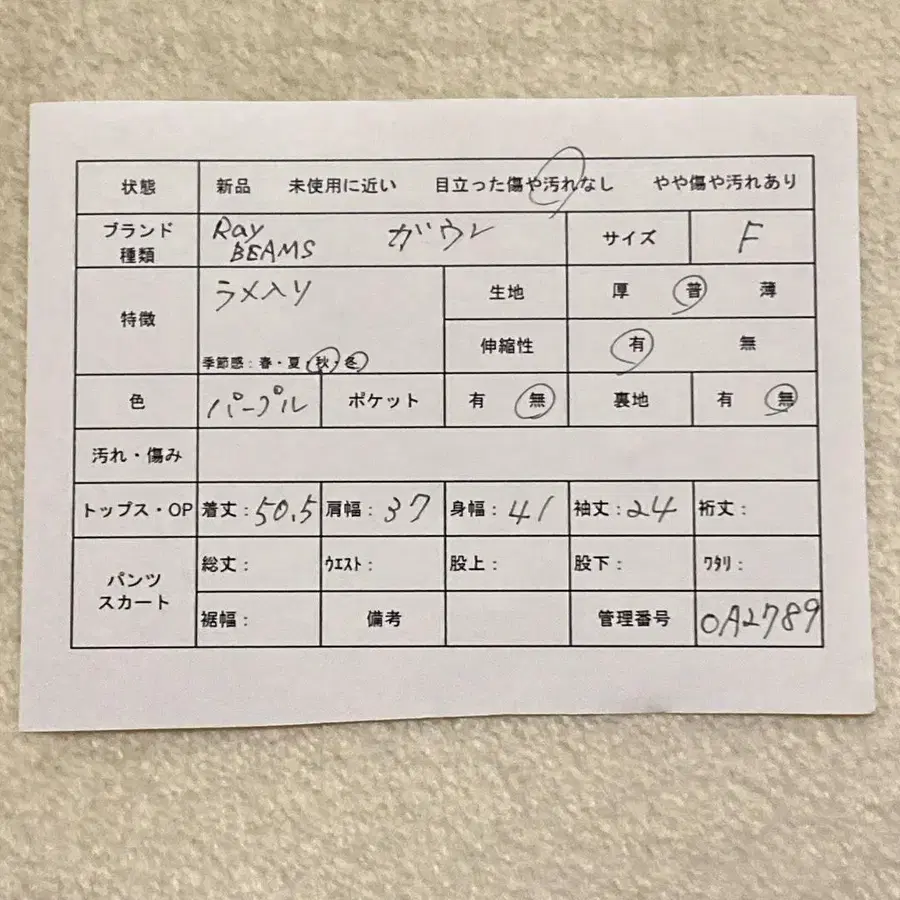 状態 新品 未使用に近い 目立った傷や汚れなし やや傷や汚れあり
ブランド 種類 Ray BEAMS ガウン サイズ F
特徴 ラメ入り 生地 厚 普 薄
季節感：春・夏・秋・冬 伸縮性 有 無
色 パープル ポケット 有 無 裏地 有 無
汚れ・傷み
トップス・OP 着丈：50.5 肩幅：37 身幅：41 袖丈：24 裄丈：
パンツ スカート 総丈： ウエスト： 股上： 股下： ワタリ：
裾幅： 備考 管理番号 OA2789